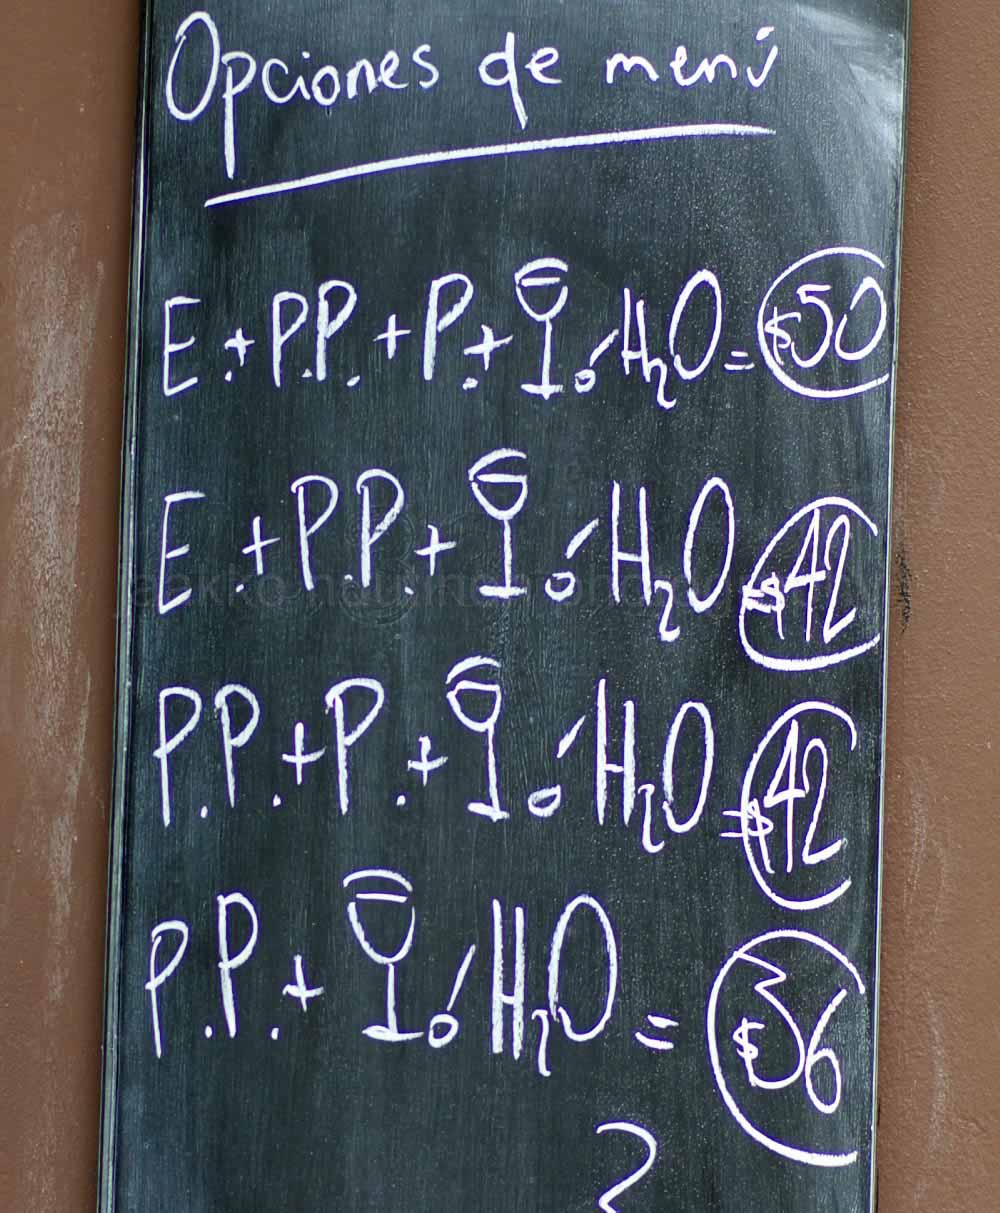 Opciones de menú
E.+P.P.+P.+ ó H2O = $50
E.+P.P.+ ó H2O = $42
P.P.+P.+ ó H2O = $42
P.P.+ ó H2O = $36